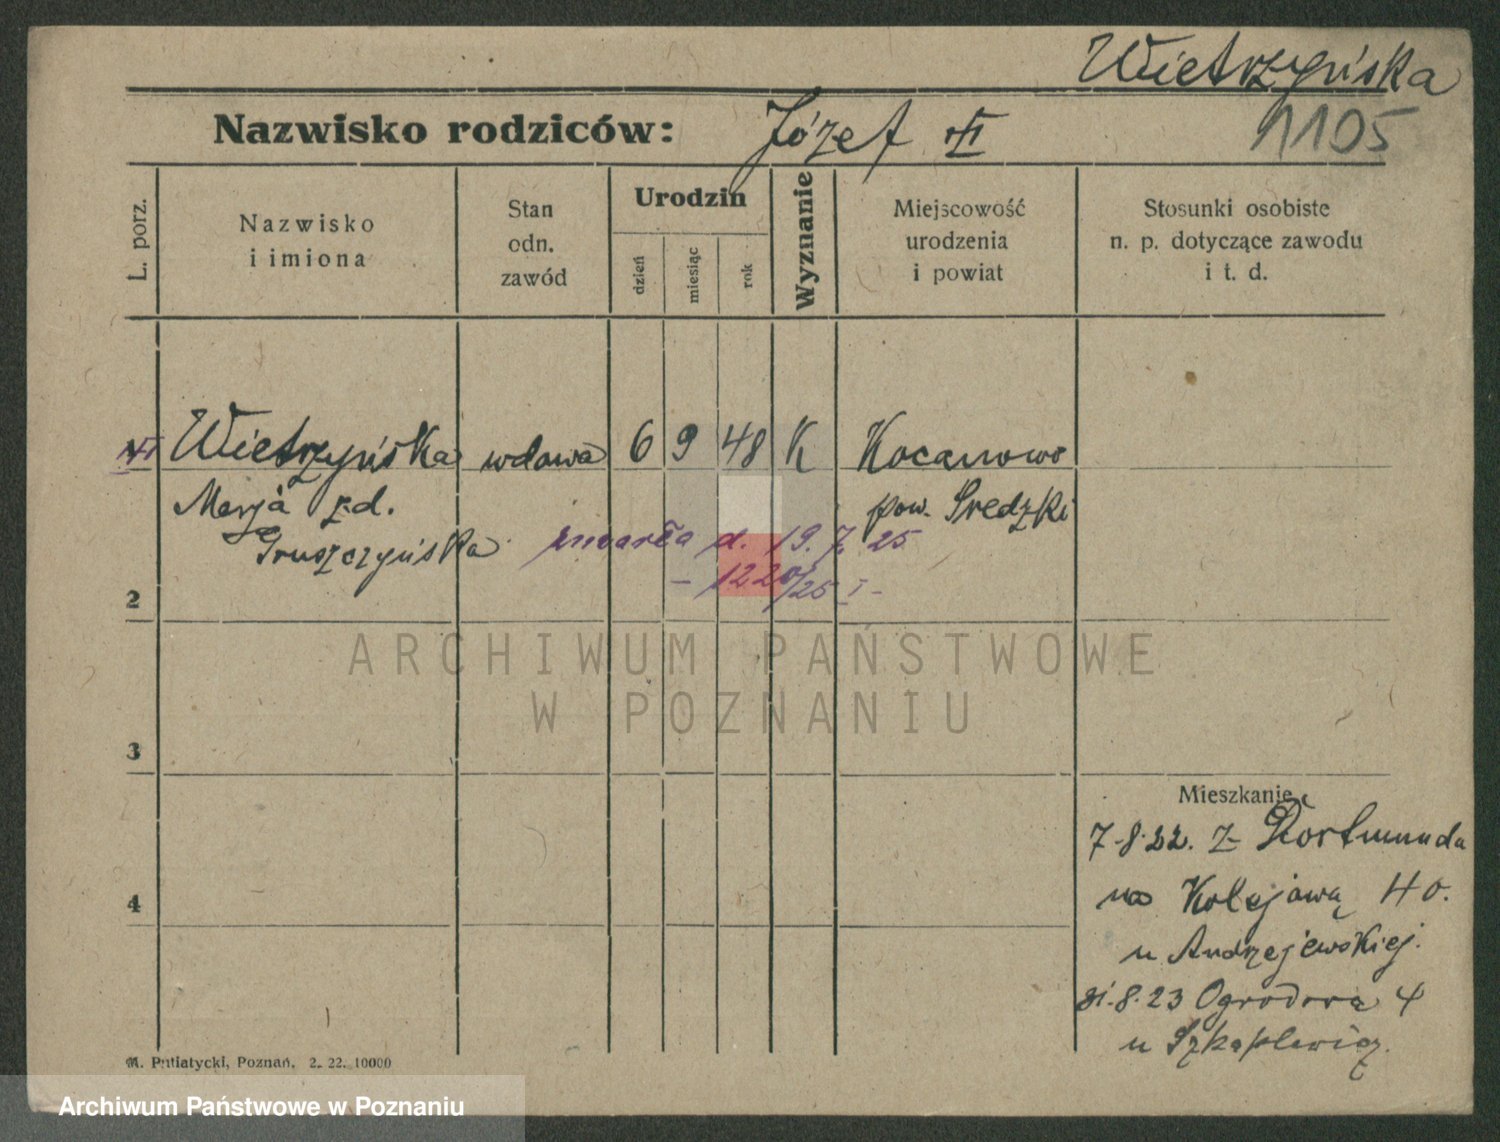 Wietrzyńska
Nazwisko rodziców: Józef
1105
L. porz.
Nazwisko
i imiona
Stan
odn.
zawód
Urodzin
dzień
miesiąc
rok
Wyznanie
Miejscowość
urodzenia
i powiat
Stosunki osobiste
n. p. dotyczące zawodu
i t. d.
Wietrzyńska wdowa 6 9 48 K Kocanowo
Marja z d. pow. Sredzki
Gruszczyńska zmarła d. 19. 7. 25
- 1220/25 I -
2
ARCHIWUM PAŃSTWOWE
W POZNANIU
3
Mieszkanie
7.8.22. z Dortmunda
na Kolejową 40.
4
u Andrzejewskiej.
31.8.23 Ogrodowa 4
u
M. Putiatycki, Poznań, 2. 22. 10000
Archiwum Państwowe w Poznaniu